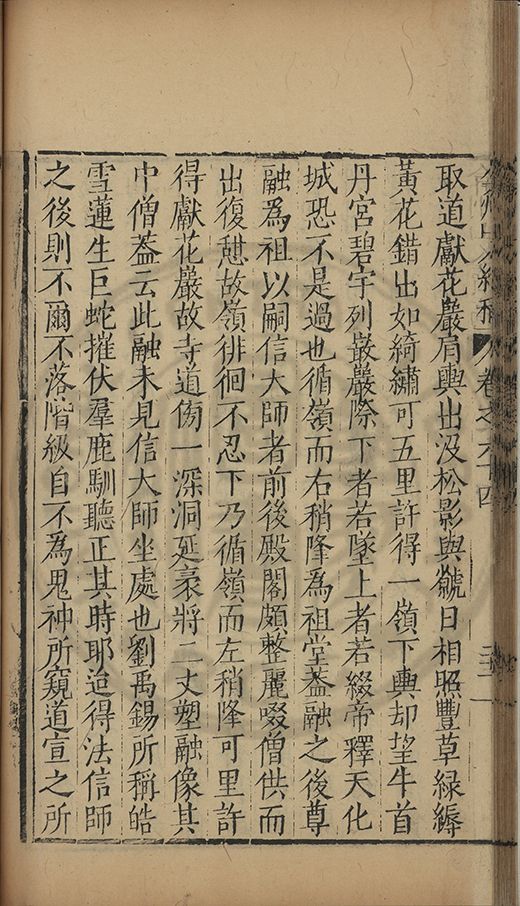 取道獻花巖肩輿出沒松影與虩日相照豐草綠縟
黃花錯出如綺繡可五里許得一嶺下輿却望牛首
丹宮碧宇列巌嚴際下者若墜上者若綴帝釋天化
城恐不是過也循嶺而右稍隆為祖堂葢融之後尊
融為祖以嗣信大師者前後殿閣頗整麗啜僧供而
出復憇故嶺徘徊不忍下乃循嶺而左稍降可里許
得獻花巖故寺道傍一深洞延袤將二丈塑融像其
中僧葢云此融未見信大師坐處也劉禹錫所稱皓
雪蓮生巨蛇摧伏羣鹿馴聽正其時耶迨得法信師
之後則不爾不落階級自不為鬼神所窺道宣之所